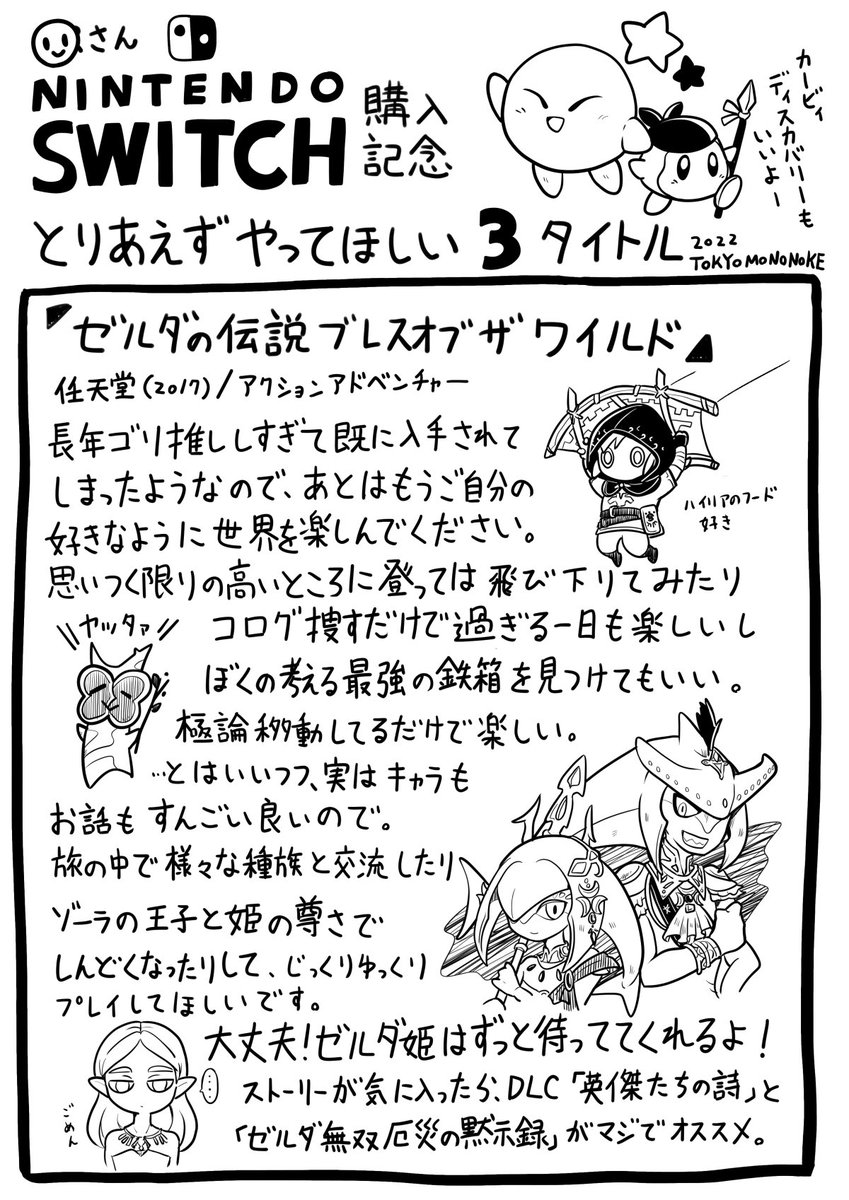 さん
NINTENDO
SWITCH
購入
記念
カービィ
ディスカバリーも
いいよー
とりあえず やってほしい 3 タイトル
2022
TOKYOMONONOKE
『ゼルダの伝説 ブレスオブ ザ ワイルド』
任天堂(2017)/アクションアドベンチャー
長年ゴリ推ししすぎて既に入手されて
しまったようなので、あとはもうご自分の
好きなように世界を楽しんでください。
ハイリアのフード
好き
思いつく限りの高いところに登っては飛び下りてみたり
\\ヤッタァ//
コログ捜すだけで過ぎる一日も楽しいし
ぼくの考える最強の鉄箱を見つけてもいい。
極論移動してるだけで楽しい。
…とはいいつつ、実はキャラも
お話もすんごい良いので。
旅の中で様々な種族と交流したり
ゾーラの王子と姫の尊さで
しんどくなったりして、じっくりゆっくり
プレイしてほしいです。
大丈夫!ゼルダ姫はずっと待っててくれるよ!
…
ごめん
ストーリーが気に入ったら、DLC「英傑たちの詩」と
「ゼルダ無双 厄災の黙示録」がマジでオススメ。